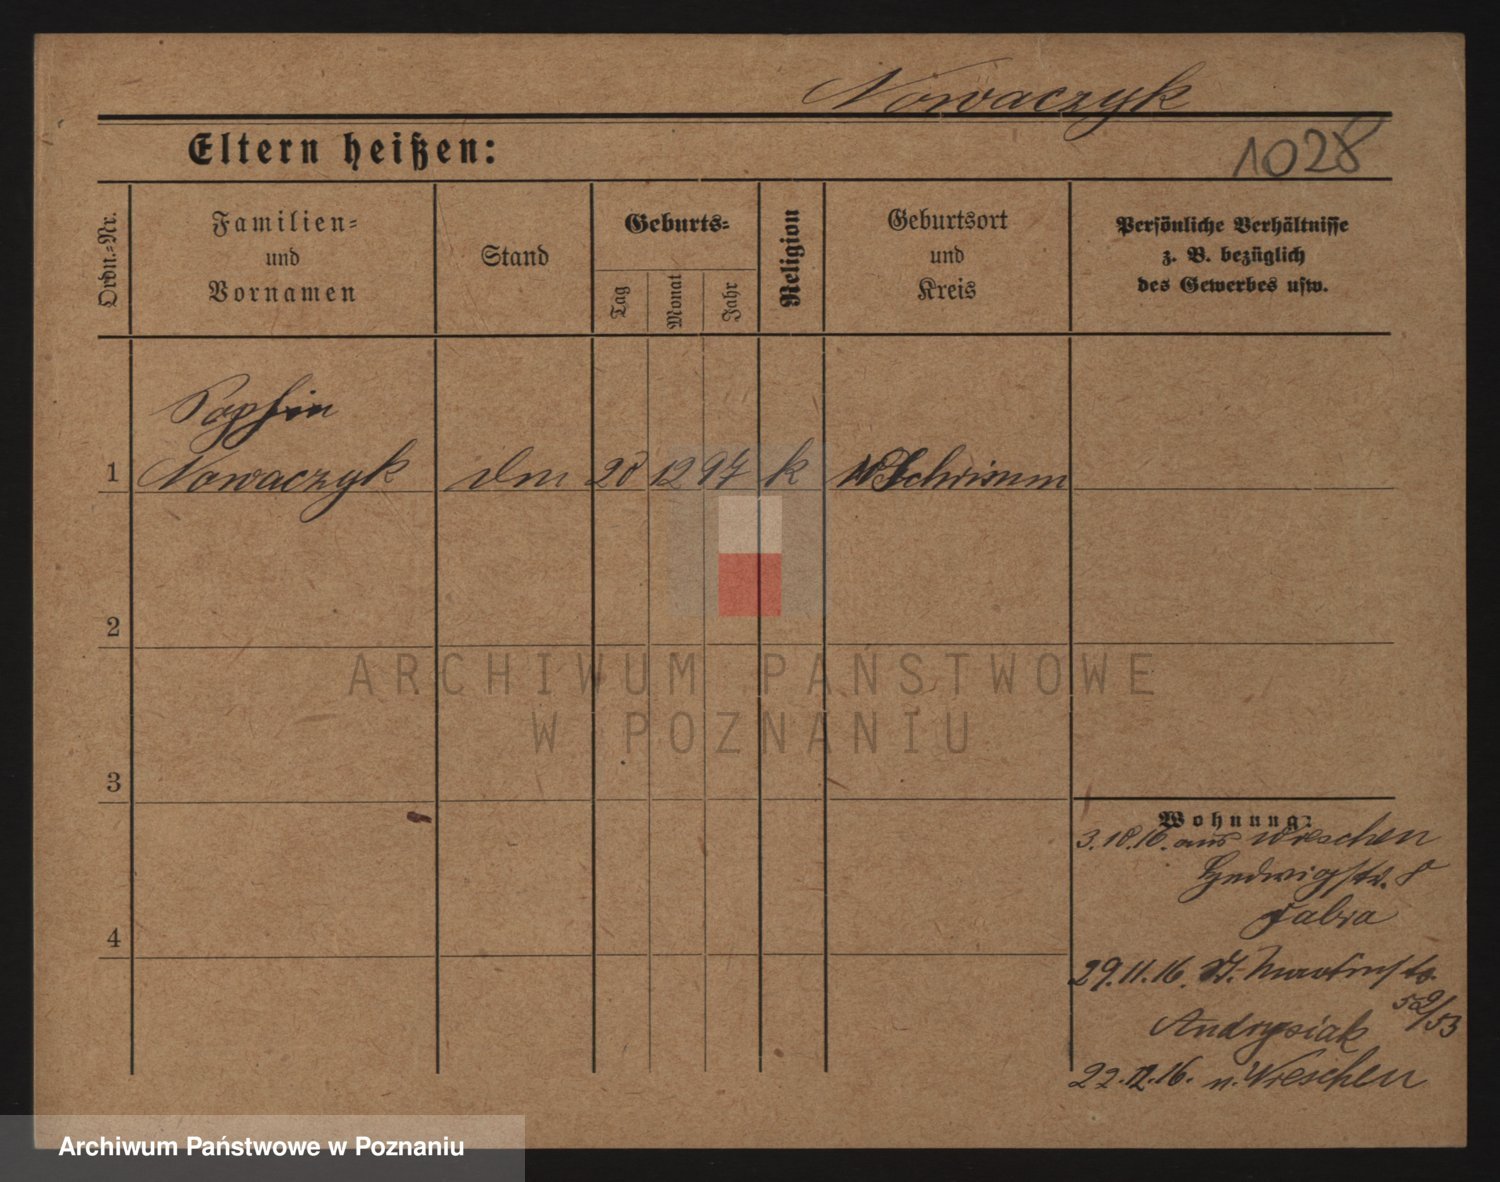 Nowaczyk
Eltern heißen:
1028
Ordn.=Nr.
Familien=
und
Vornamen
Stand
Geburts=
Tag
Monat
Jahr
Religion
Geburtsort
und
Kreis
Persönliche Verhältnisse
z. B. bezüglich
des Gewerbes usw.
Sophie
1 Nowaczyk 20 12 97 k Schrimm
2
3
4
Wohnung:
3.10.16. aus Wreschen
Hedwigstr. 8
29.11.16. St. Martinstr.
52/53
Andrysiak
22.12.16. n. Wreschen
ARCHIWUM PAŃSTWOWE
W POZNANIU
Archiwum Państwowe w Poznaniu